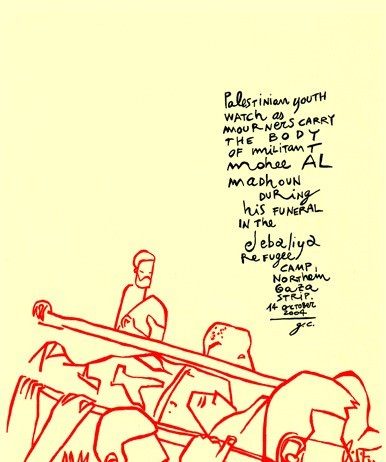 Palestinian youth
watch as
mourners carry
the body
of militant
mohee AL
madhoun
during
his funeral
in the
Jebaliya
refugee
camp,
northern
Gaza
strip.
14 october
2004